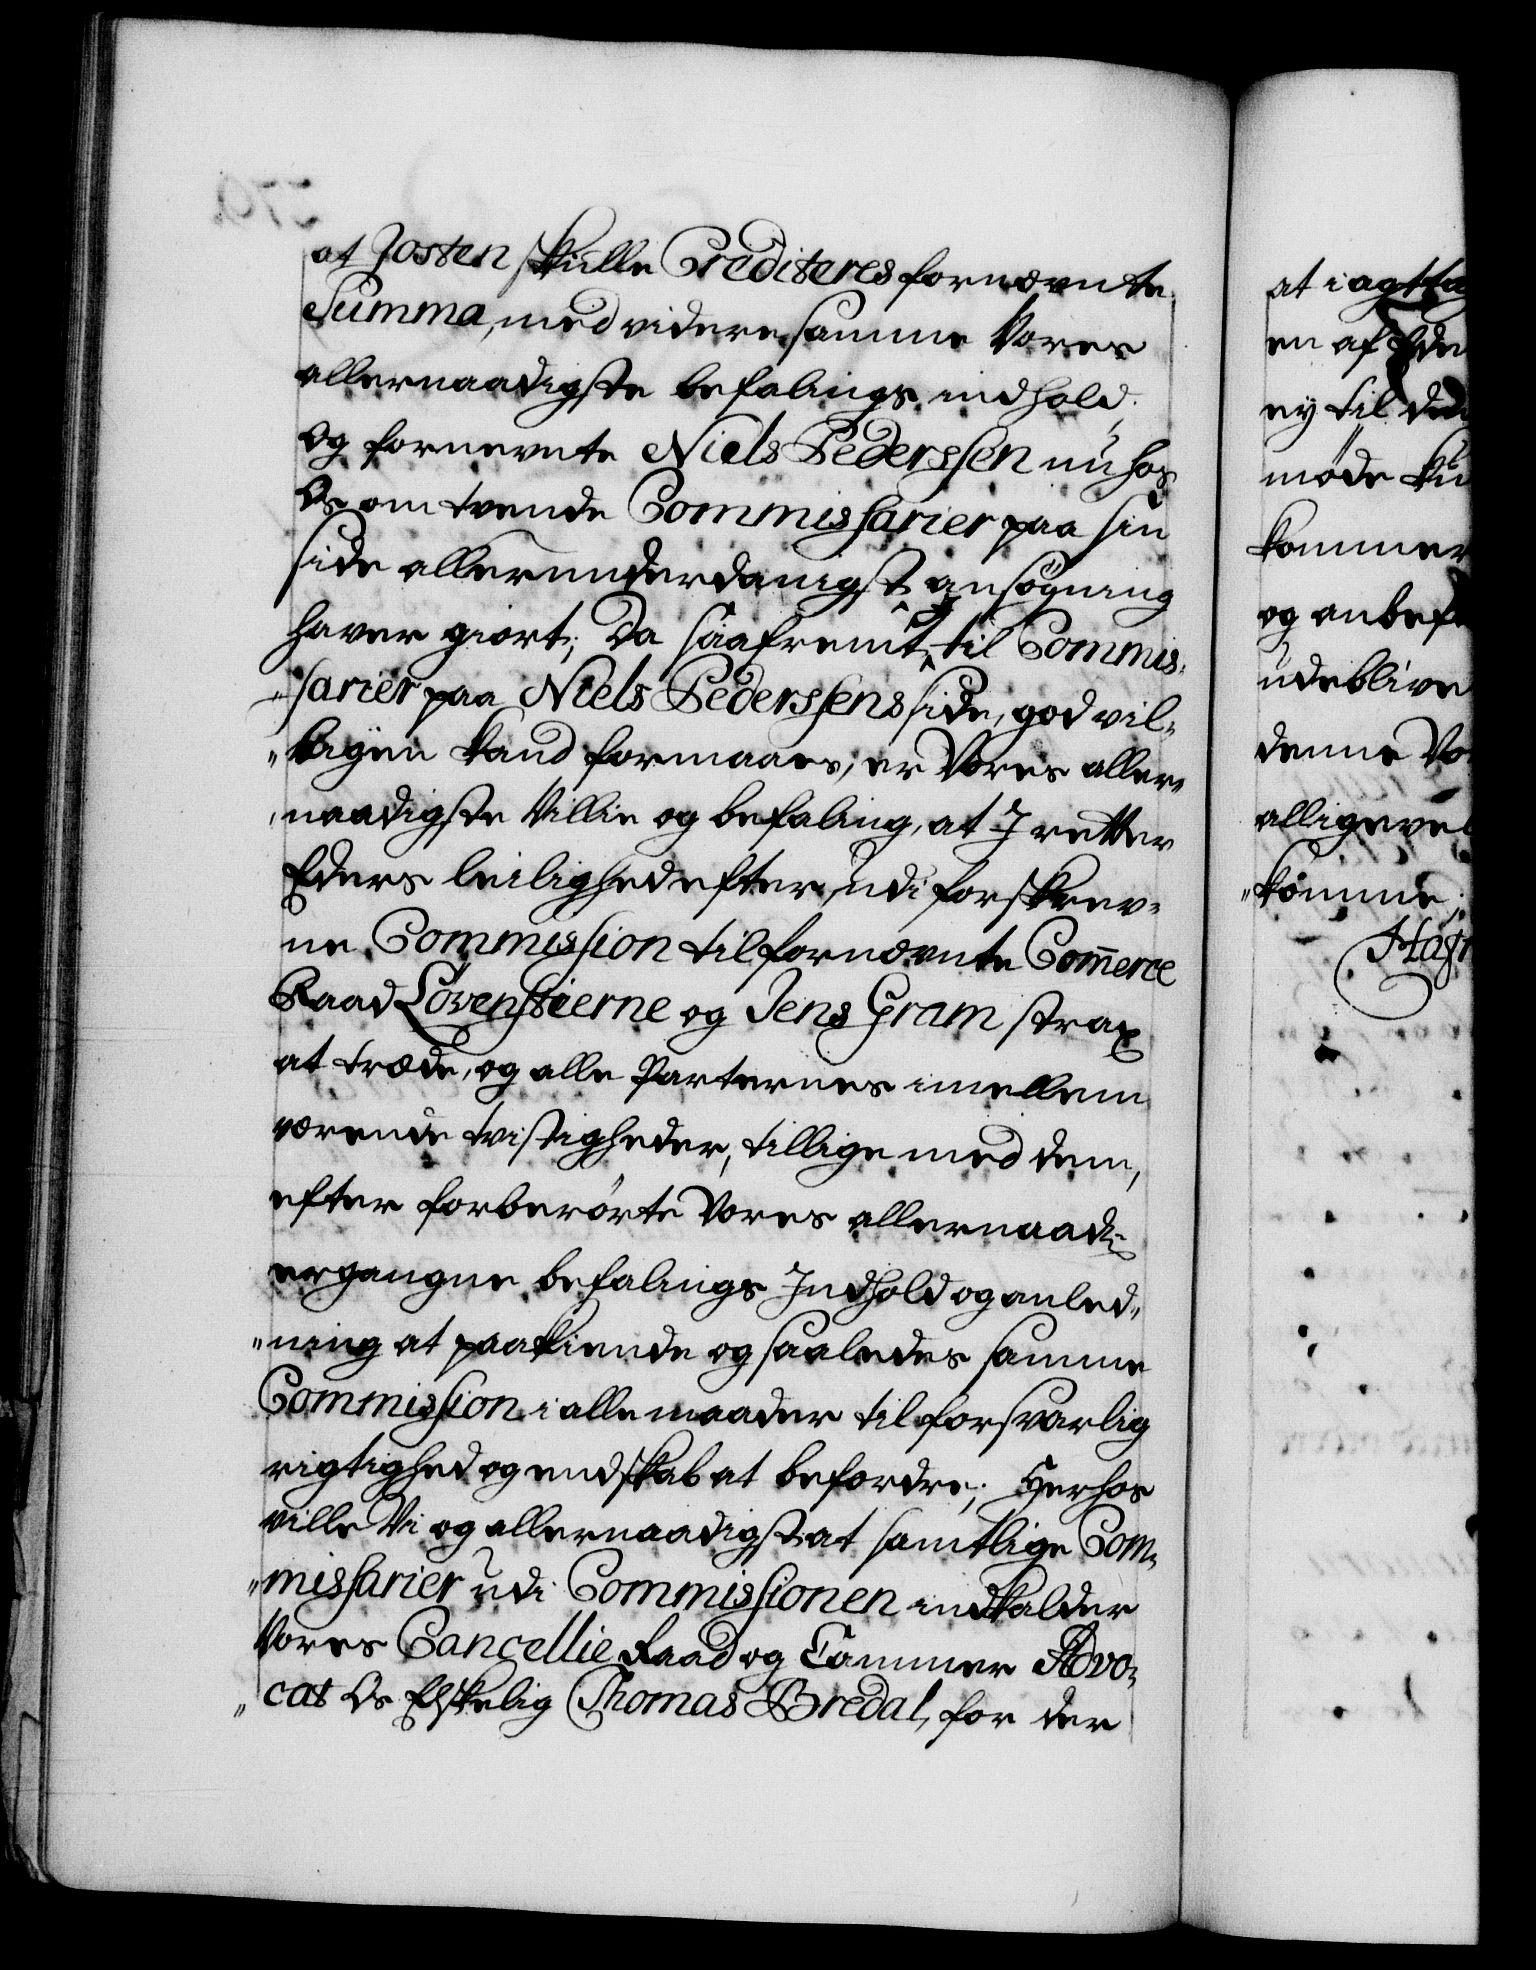 at Josten skulle Crediteres fornævnte
Summa, med videre samme Vores
allernaadigste befalings indhold.
Og fornevnte Niels Pederssen nu hos
Os om tvende Commissarier paa sin
side allerunderdanigst ansøgning
haver giort; Da saafremt I til Commis-
sarier paa Niels Pederssens side, god vil-
ligen kand formaaes, er Vores aller-
naadigste Villie og befaling, at I retter
Eders leilighed efter, udi forskrev-
ne Commission til fornævnte Com̅erce
Raad Løvenstierne og Jens Gram strax
at træde, og alle Parternes imellem
værende tvistigheder, tillige med dem,
efter forberørte Vores allernaad:
ergangne befalings Indhold og anled-
ning at paakiende og saaledes samme
Commission i alle maader til forsvarlig
rigtighed og endskab at befordre; Herhos
ville Vi og allernaadigst at samtlige Com-
missarier udi Commissionen indkalder
Vores Cancellie Raad og Cammer Advo-
cat Os Elskelig Thomas Bredal, for der
at iagttag
en af Ede
ey til ded
møde ku
kommer
og anbef
udeblive
denne Vo
alligevel
komme;
Hafn